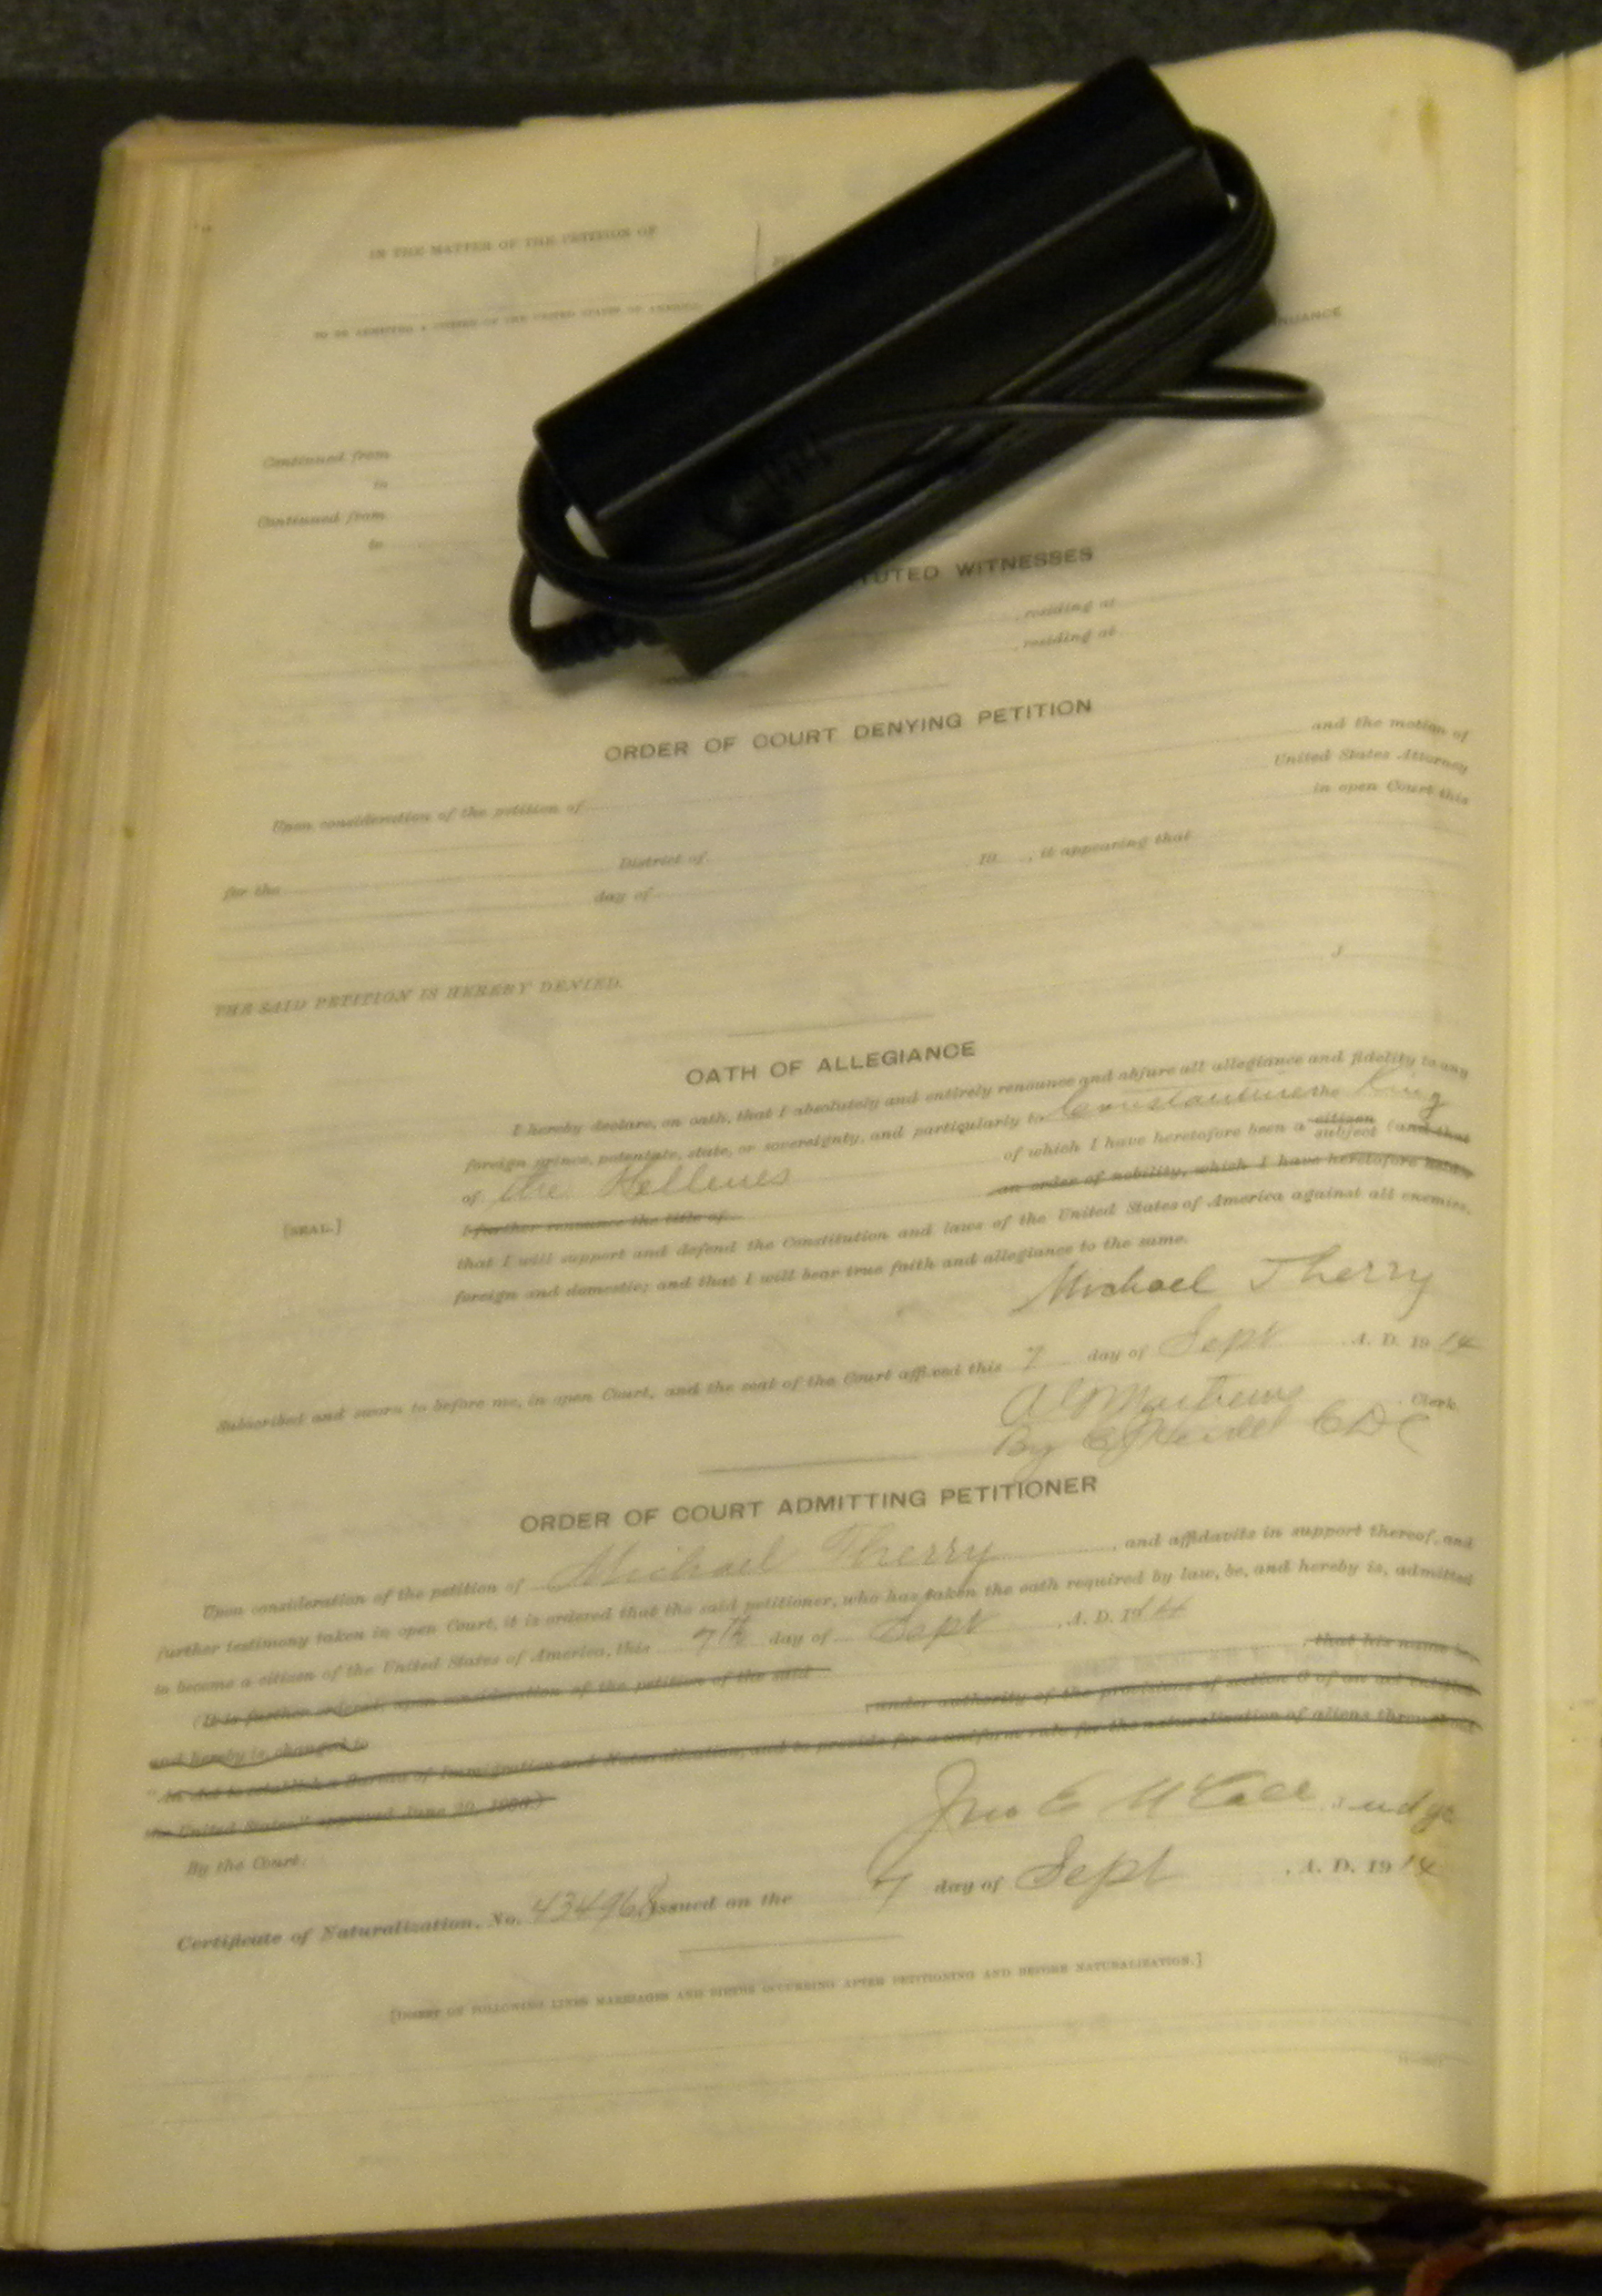 IN THE MATTER OF THE PETITION OF
TO BE ADMITTED A CITIZEN OF THE UNITED STATES OF AMERICA.
Continued from
to
Continued from
to
WITNESSES
, residing at
, residing at
ORDER OF COURT DENYING PETITION
Upon consideration of the petition of and the motion of
for the District of United States Attorney
day of , 19 , it appearing that in open Court this
THE SAID PETITION IS HEREBY DENIED.
OATH OF ALLEGIANCE
I hereby declare, on oath, that I absolutely and entirely renounce and abjure all allegiance and fidelity to any
foreign prince, potentate, state, or sovereignty, and particularly to Constantine the King
of the Hellenes of which I have heretofore been a citizen subject (and that
I further renounce the title of an order of nobility, which I have heretofore held);
that I will support and defend the Constitution and laws of the United States of America against all enemies,
foreign and domestic; and that I will bear true faith and allegiance to the same.
[SEAL.]
Michael Therry
Subscribed and sworn to before me, in open Court, and the seal of the Court affixed this 7 day of Sept A. D. 1914
, Clerk.
By
ORDER OF COURT ADMITTING PETITIONER
Upon consideration of the petition of Michael Therry , and affidavits in support thereof, and
further testimony taken in open Court, it is ordered that the said petitioner, who has taken the oath required by law, be, and hereby is, admitted
to become a citizen of the United States of America, this 7th day of Sept , A. D. 1914
(It is further ordered, upon consideration of the petition of the said , that his name be,
and hereby is, changed to , under authority of the provisions of section 6 of an act entitled
"An Act to establish a Bureau of Immigration and Naturalization, and to provide for a uniform rule for the naturalization of aliens throughout
the United States," approved June 29, 1906.)
By the Court.
Jno E McCall Judge
Certificate of Naturalization, No. 434968 issued on the 7 day of Sept , A. D. 1914
[INSERT ON FOLLOWING LINES MARRIAGES AND BIRTHS OCCURRING AFTER PETITIONING AND BEFORE NATURALIZATION.]